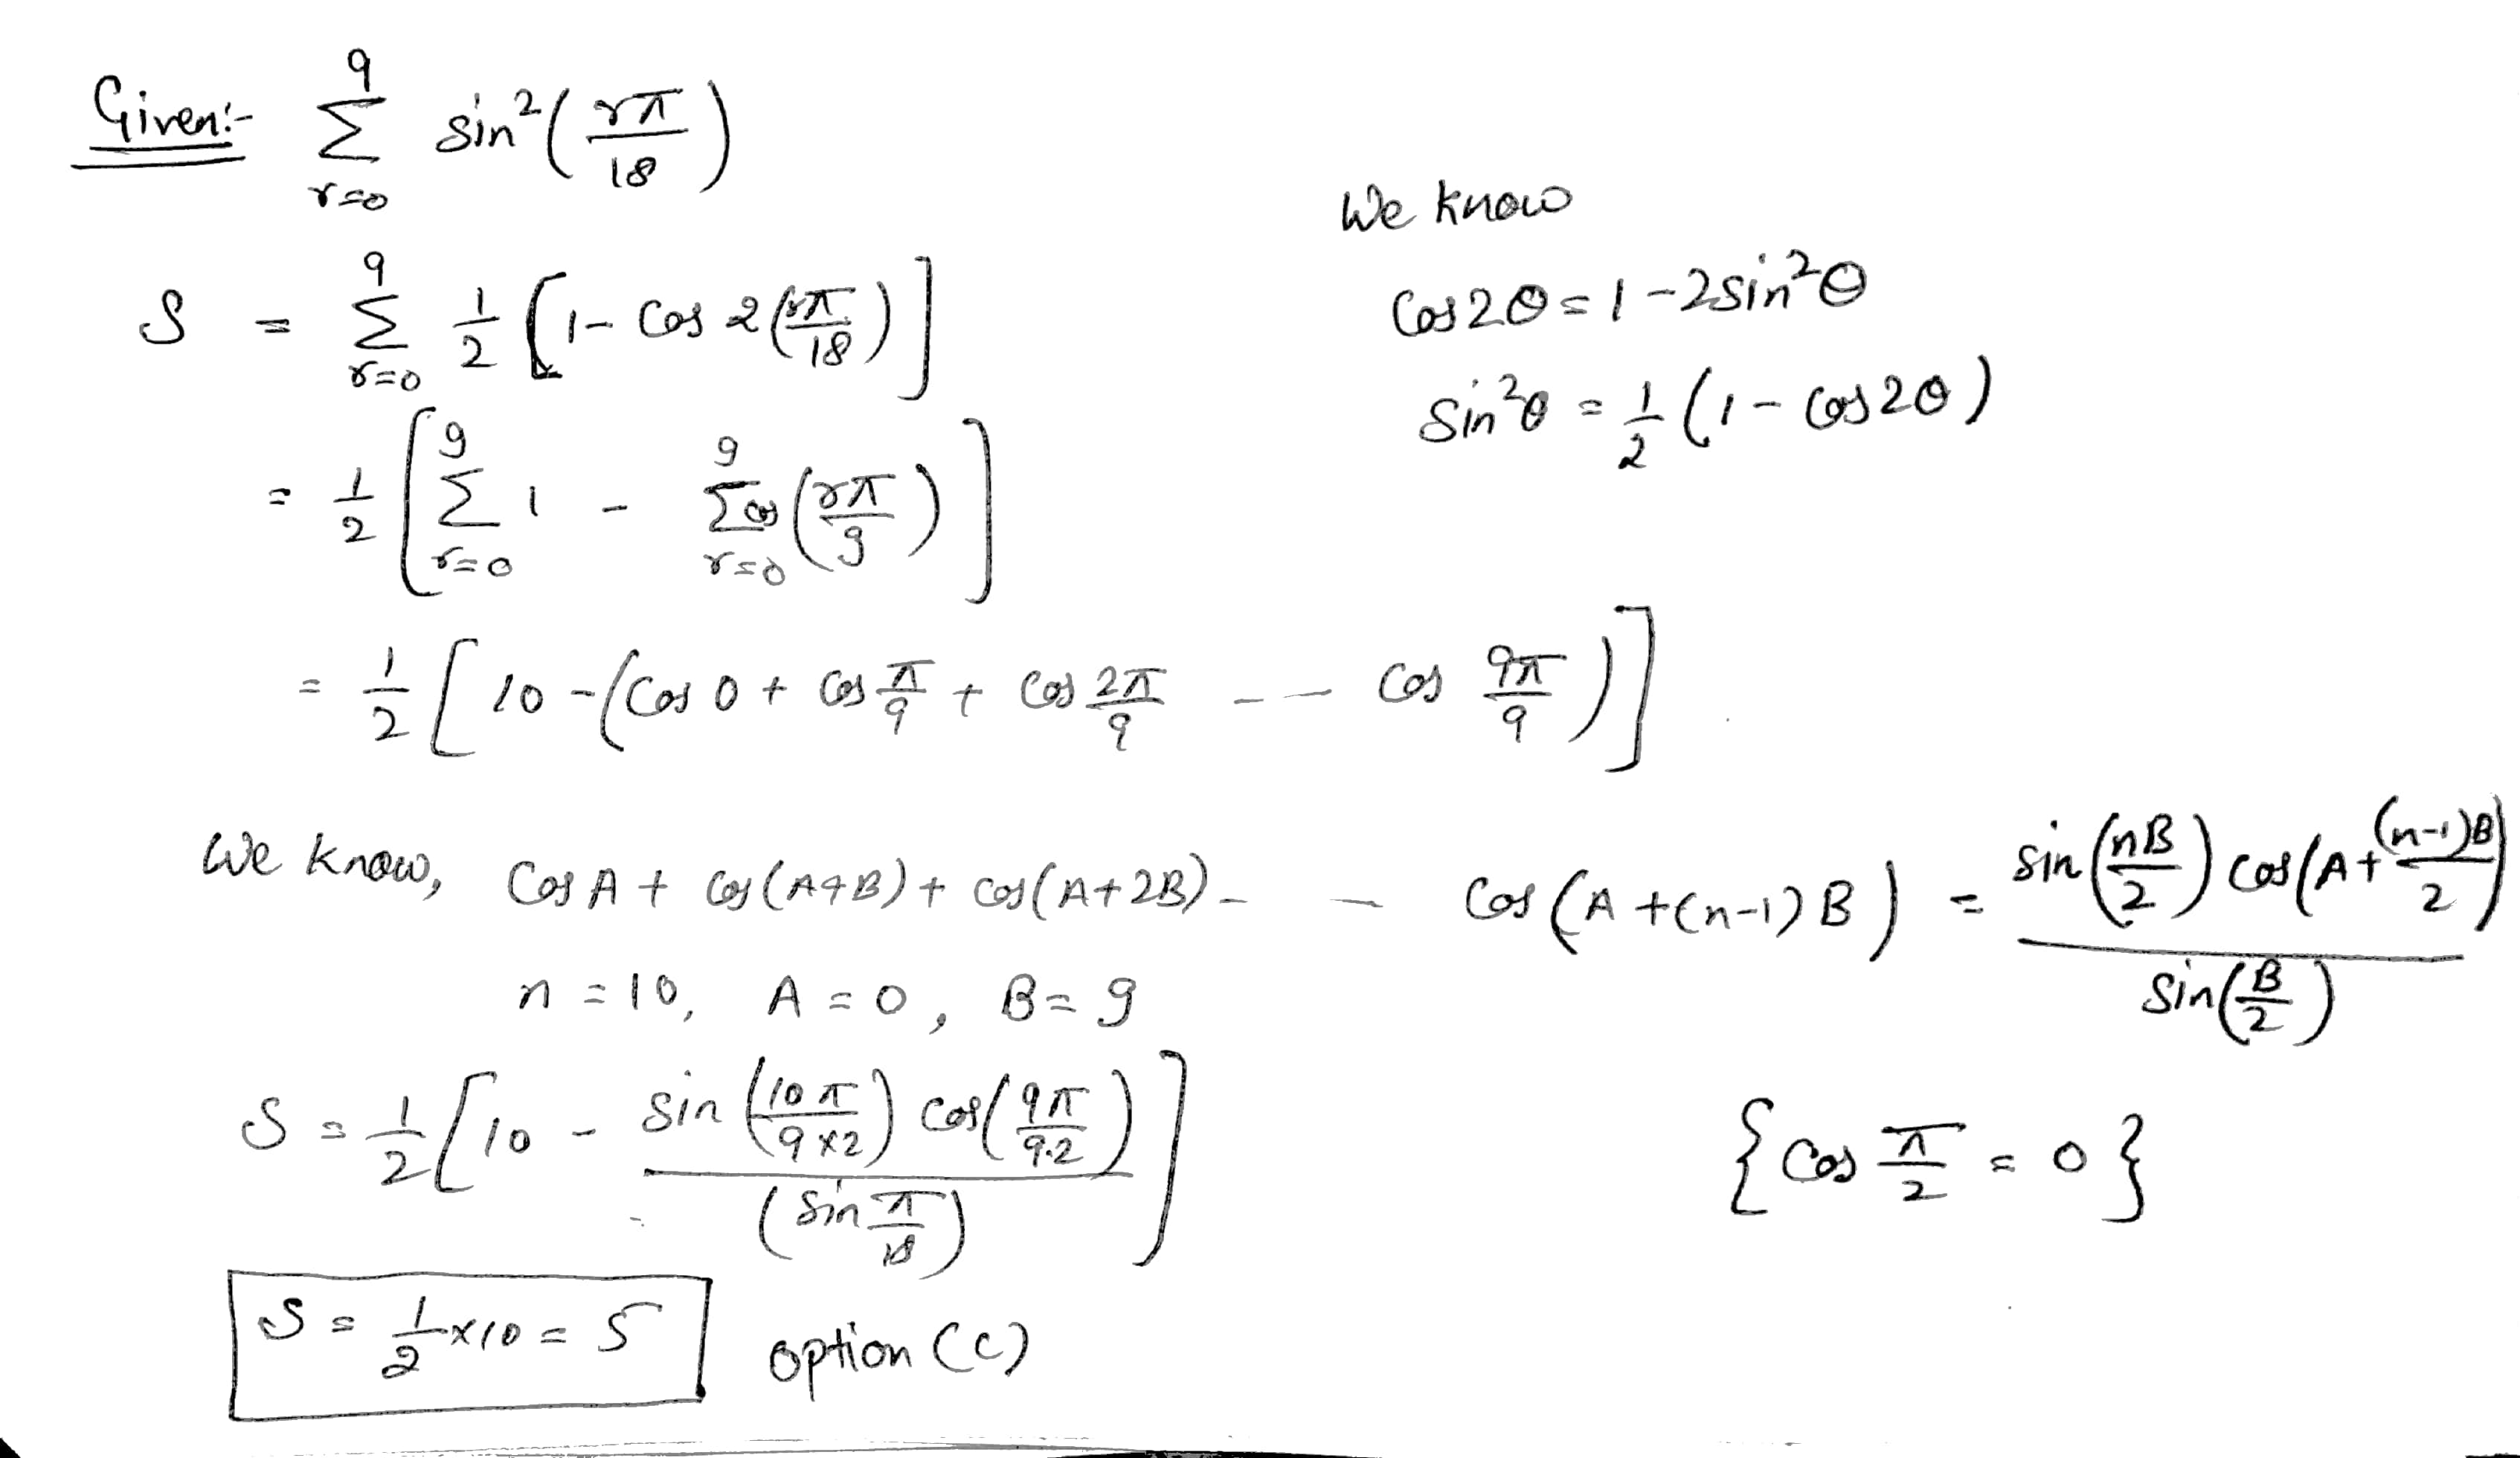 Given:- \sum_{r=0}^{9} sin^2(\frac{rπ}{18})
We know
S = \sum_{r=0}^{9} \frac{1}{2} [1 - Cos 2(\frac{rπ}{18})]
Cos2θ = 1 - 2sin^2θ
Sin^2θ = \frac{1}{2} (1 - Cos2θ)
= \frac{1}{2} [\sum_{r=0}^{9} 1 - \sum_{r=0}^{9} cos (\frac{rπ}{9})]
= \frac{1}{2} [10 - (Cos 0 + Cos \frac{π}{9} + Cos \frac{2π}{9} -- Cos \frac{9π}{9})]
We know, Cos A + Cos (A+B) + Cos (A+2B) - - Cos (A+(n-1)B) = \frac{sin (\frac{nB}{2}) cos (A+\frac{(n-1)B}{2})}{Sin (\frac{B}{2})}
n = 10, A = 0, B = 9
S = \frac{1}{2} [10 - \frac{Sin (\frac{10π}{9×2}) Cos (\frac{9π}{9.2})}{(Sin \frac{π}{18})}]
{Cos \frac{π}{2} = 0}
S = \frac{1}{2} × 10 = 5 option (C)